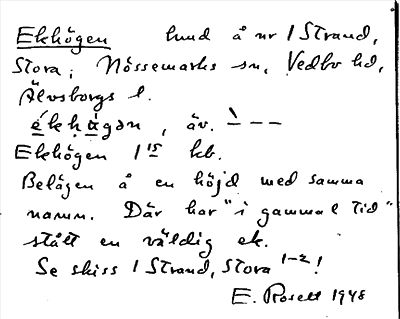 Ekhögen lund å nr 1 Strand,
Stora, Nössemarks sn, Vedbo hd,
Älvsborgs l.
é̱khà̱gən, äv. ˋ– – –
Ekhögen 1 15 kb.
Belägen å en höjd med samma
namn. Där har "i gammal tid"
stått en väldig ek.
Se skiss 1 Strand, Stora 1-2!
E. Rosell 1948